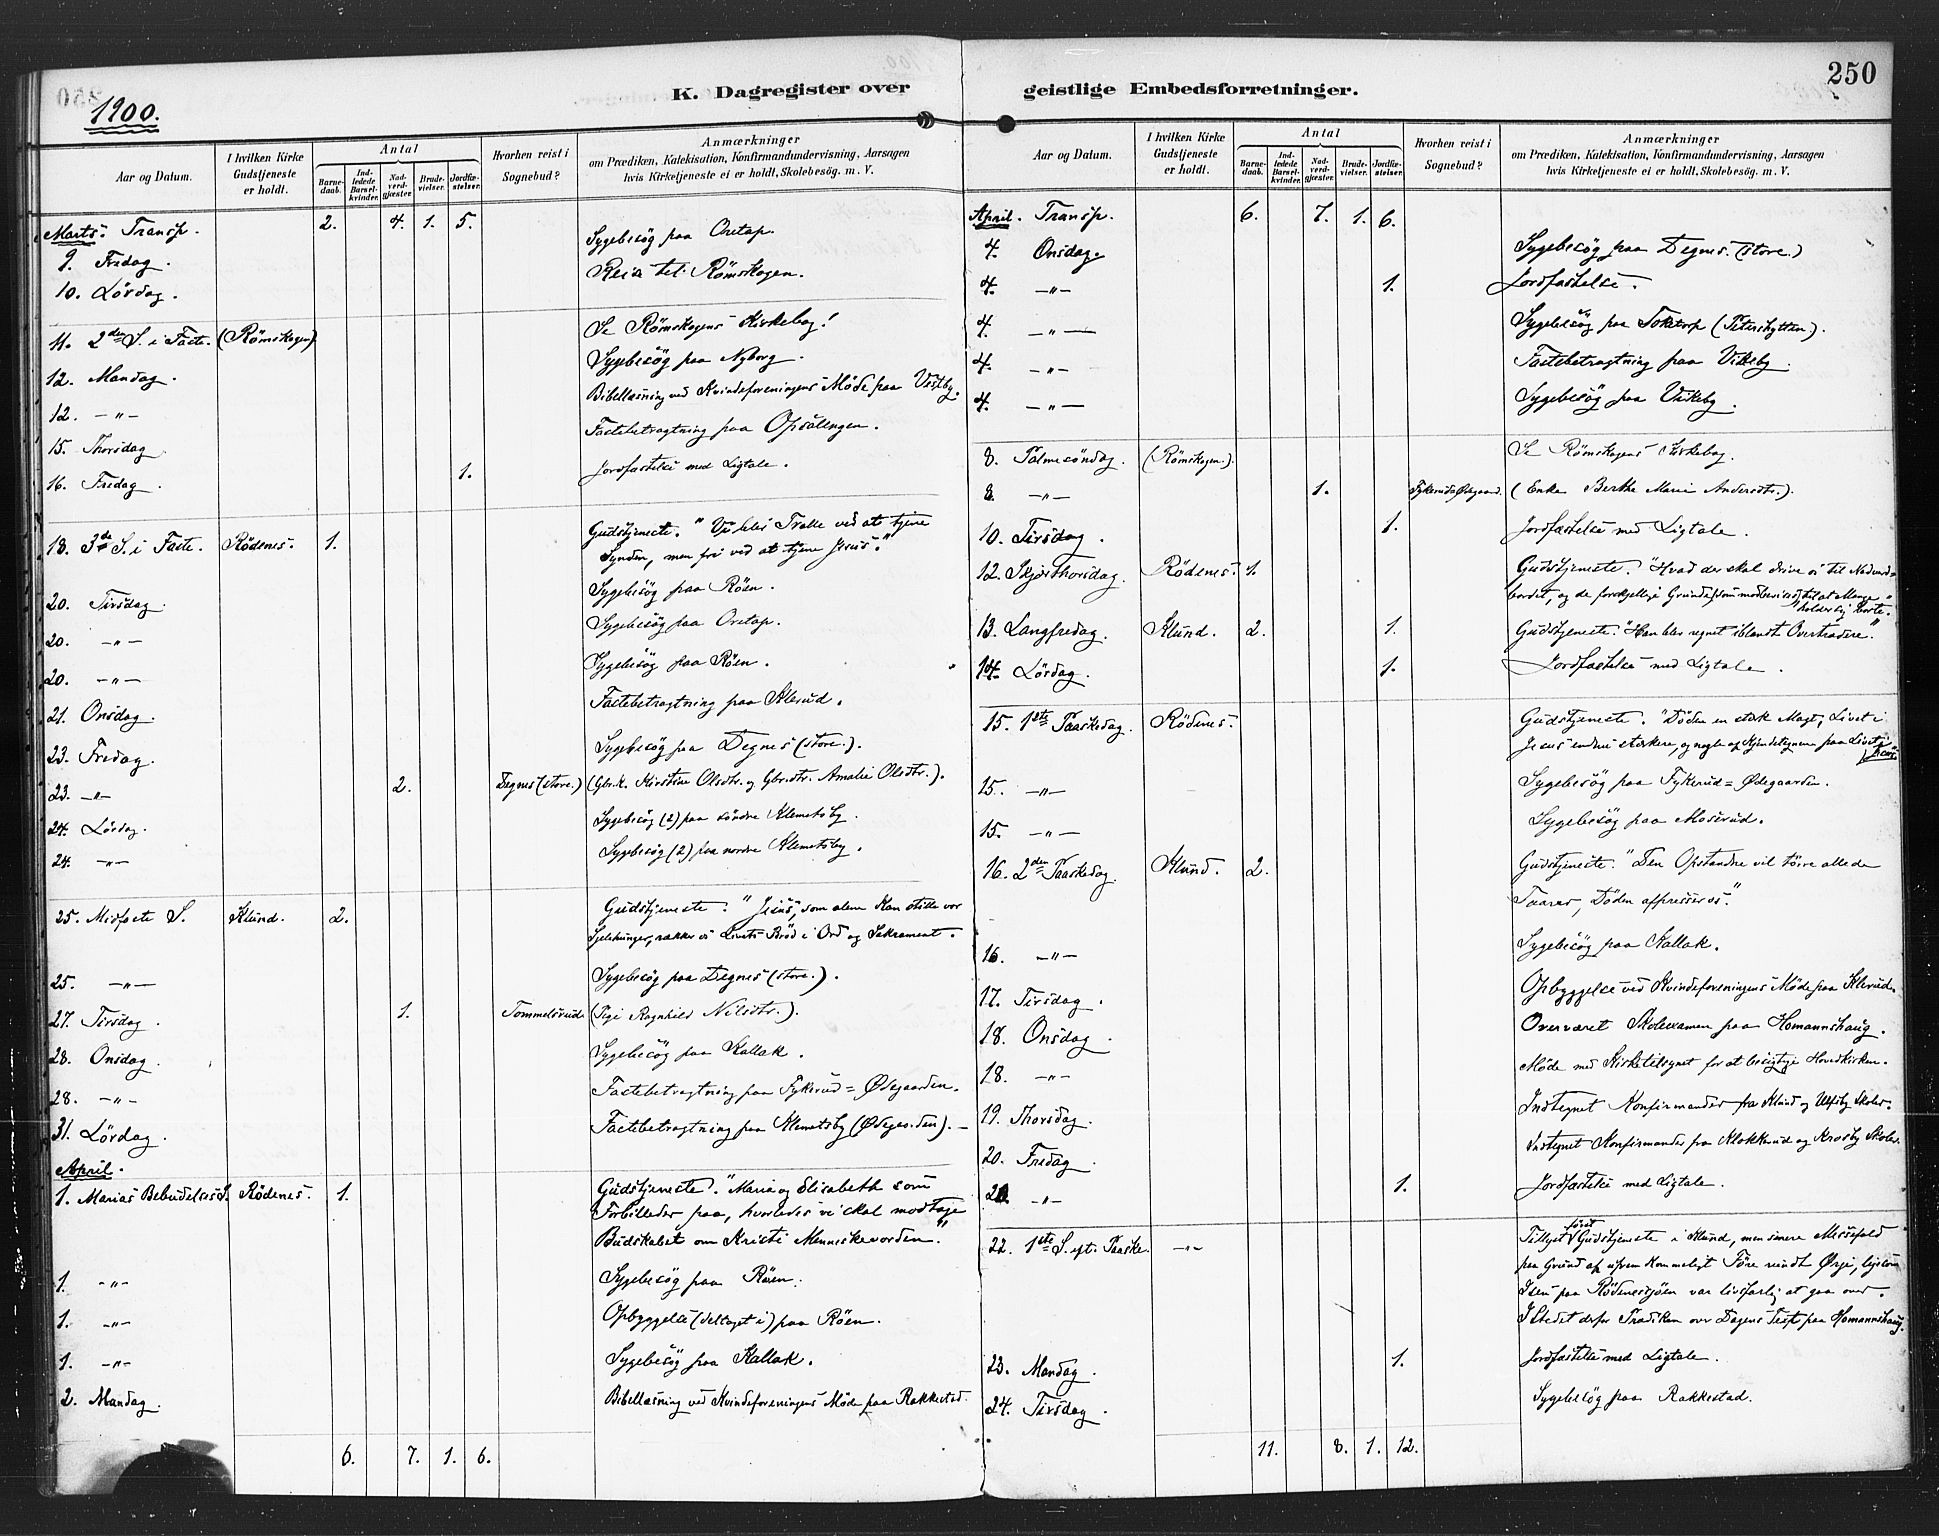 1900.
K. Dagregister over
Aar og Datum.
I hvilken Kirke Gudstjeneste er holdt.
Antal
Barnedaab.
Indledede Barselkvinder.
Nadverdgjæster.
Brudevielser.
Jordfæstelser.
Hvorhen reist i Sognebud?
Anmærkninger
om Prædiken, Katekisation, Konfirmandundervisning, Aarsagen
hvis Kirketjeneste ei er holdt, Skolebesøg. m. V.
Marts. Transp. 2. 4. 1. 5.
9. Fredag. Sygebesög paa Oretap.
10. Lördag. Reise til Römskogen.
11. 2den S. i Faste. (Römskogen) Se Römskogens Kirkebog!
12. Mandag. Sygebesög paa Nyborg.
12. -"- Bibellæsning ved Kvindeforeningens Möde paa Vestby.
15. Thorsdag. Fastebetragtning paa Opsalengen.
16. Fredag. 1. Jordfæstelse med Ligtale.
18. 3de S. i Faste. Rödenes. 1. Gudstjeneste. "Vi blev Trælle ved at tjene
Synden, men fri ved at tjene Jesus."
20. Tirsdag. Sygebesög paa Röen.
20. -"- Sygebesög paa Oretap.
20. -"- Sygebesög paa Röen.
21. Onsdag. Fastebetragtning paa Klerud.
23. Fredag. Sygebesög paa Degnes (store.).
23. -"- 2. Degnes (store.) (Gbr.k. Kirstine Olsdtr. og Gbr.dtr. Amalie Olsdtr.).
24. Lördag. Sygebesög (2) paa söndre Klemetsby.
24. -"- Sygebesög (2) paa nordre Klemetsby.
25. Midfaste S. Klund. 2. Gudstjeneste. "Jesus, som alene kan stille vor
Sjelehunger, rækker os Livets Bröd i Ord og Sakrament.
25. -"- Sygebesög paa Degnes (store.).
27. Tirsdag. 1. Tommelsrud. (Pige Ragnhild Nilsdtr.).
28. Onsdag. Sygebesög paa Kallak.
28. -"- Fastebetragtning paa Fykerud=Ødegaarden.
31. Lördag. Fastebetragtning paa Klemetsby (Ødegaarden).
April.
1. Marias Bebudelses S. Rödenes. 1. Gudstjeneste. "Maria og Elisabeth som
Forbilleder paa, hvorledes vi skal modtage
Budskabet om Kristi Menneskevorden."
1. -"- Sygebesög paa Röen.
1. -"- Opbyggelse (deltaget i) paa Röen.
1. -"- Sygebesög paa Kallak.
2. Mandag. Bibellæsning ved Kvindeforeningens Möde paa Rakkestad.
6. 7. 1. 6.
250
geistlige Embedsforretninger.
Aar og Datum.
I hvilken Kirke Gudstjeneste er holdt.
Antal
Barnedaab.
Indledede Barselkvinder.
Nadverdgjæster.
Brudevielser.
Jordfæstelser.
Hvorhen reist i Sognebud?
Anmærkninger
om Prædiken, Katekisation, Konfirmandundervisning, Aarsagen
hvis Kirketjeneste ei er holdt, Skolebesøg. m. V.
April. Transp. 6. 7. 1. 6.
4. Onsdag. Sygebesög paa Degnes. (store.)
4. -"- 1. Jordfæstelse.
4. -"- Sygebesög paa Toketorp (Petershytten).
4. -"- Fastebetragtning paa Vikeby.
4. -"- Sygebesög paa Vikeby.
8. Palmesöndag. (Römskogen.). Se Römskogens Kirkebog.
8. -"- 1. Fykerud=Ødegaard. (Enke Berthe Marie Andersdtr.).
10. Tirsdag. 1. Jordfæstelse med Ligtale.
12. Skjærthorsdag. Rödenes. 1. Gudstjeneste. "Hvad der skal drive os til Nadverd=
bordet, og de forskjellige Grunde, som
holder sig borte."
13. Langfredag. Klund. 2. 1. Gudstjeneste. "Han blev regnet iblandt Overtrædere."
14. Lördag. 1. Jordfæstelse med Ligtale.
15. 1ste Paaskedag. Rödenes. Gudstjeneste. "Döden en stærk Magt, Livet i
Jesus endnu stærkere, og nogle af Kjendetegnene paa Livet i Jesus."
15. -"- Sygebesög paa Fykerud=Ødegaarden.
15. -"- Sygebesög paa Moserud.
16. 2den Paaskedag. Klund. 2. Gudstjeneste. "Den Opstandne vil törre alle de
Taarer, Döden affresser os."
16. -"- Sygebesög paa Kallak.
17. Tirsdag. Opbyggelse ved Kvindeforeningens Möde paa Klerud.
18. Onsdag. Overværet Skoleexamen paa Homannshaug.
18. -"- Möde med Kirketilsynet for at besigtige Hovedkirken.
19. Thorsdag. Indtegnet Konfirmander fra Klund og Ulfsby Skoler.
20. Fredag. Indtegnet Konfirmander fra Klokkerud og Krosby Skoler.
20. -"- 1. Jordfæstelse med Ligtale.
22. 1ste S. eft. Paaske. -"- Tillyst först Gudstjeneste i Klund, men senere Messefald
paa Grund af ufremkommeligt Före rundt Ørje, ligesom
Isen paa Rödenessjöen var livsfarlig at gaa over.
I Stedet derfor Prædiken over Dagens Text paa Homannshaug.
23. Mandag. 1. Jordfæstelse med Ligtale.
24. Tirsdag. Sygebesög paa Rakkestad.
11. 8. 1. 12.